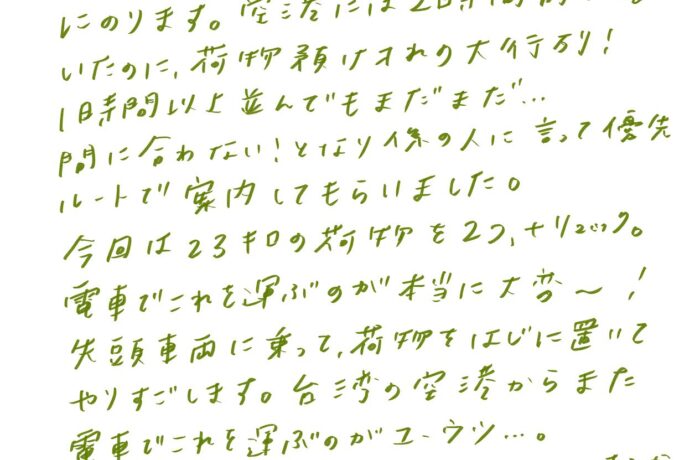 にのります。空港には2時間前に
いたのに、荷物預け入れの大行列!
1時間以上並んでもまだまだ…
間に合わない!となり係の人に言って優先
ルートで案内してもらいました。
今回は23キロの荷物を2つ、+リュック。
電車でこれを運ぶのが本当に大変〜!
先頭車両に乗って、荷物をはじに置いて
やりすごします。台湾の空港からまた
電車でこれを運ぶのがユーウツ…。